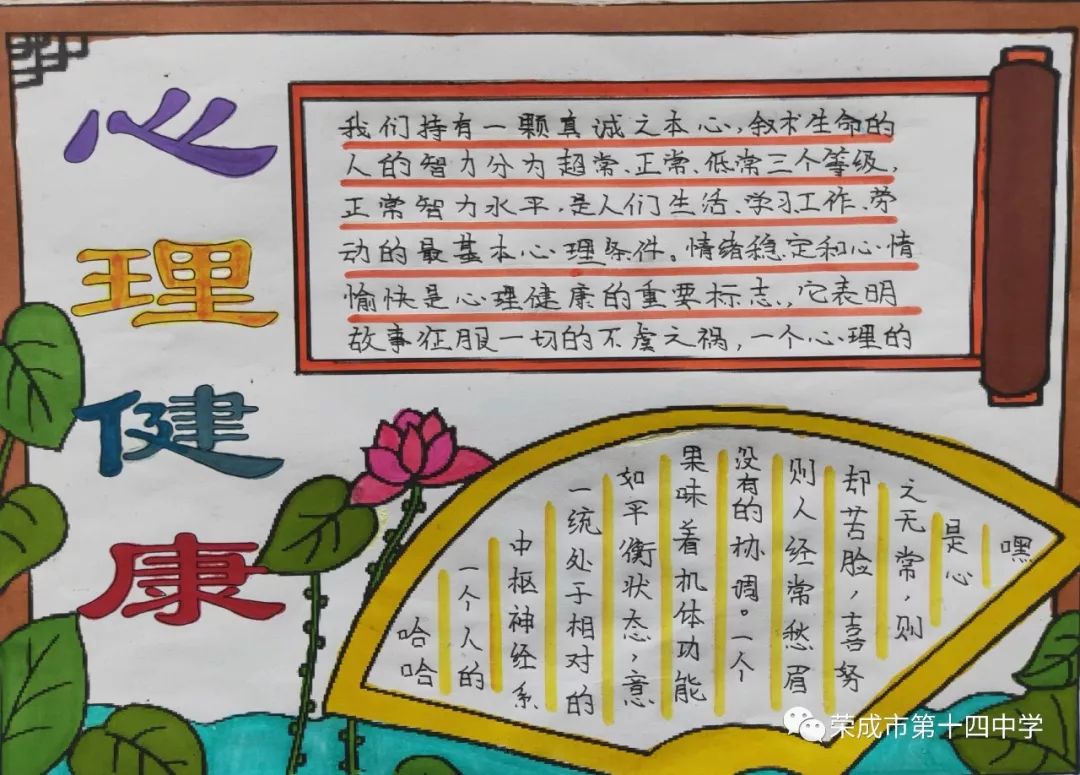 心理健康
我们持有一颗真诚之本心，叙术生命的
人的智力分为超常、正常、低常三个等级，
正常智力水平，是人们生活、学习工作、劳
动的最基本心理条件。情绪稳定和心情
愉快是心理健康的重要标志，它表明
故事征服一切的不虞之祸，一个心理的
嘿
是心
之无常，则
却苦脸，喜努
则人经常愁眉
没有的协调。一个
果味着机体功能
如平衡状态，意
一统处于相对的
中枢神经系
一个人的
哈哈
荣成市第十四中学